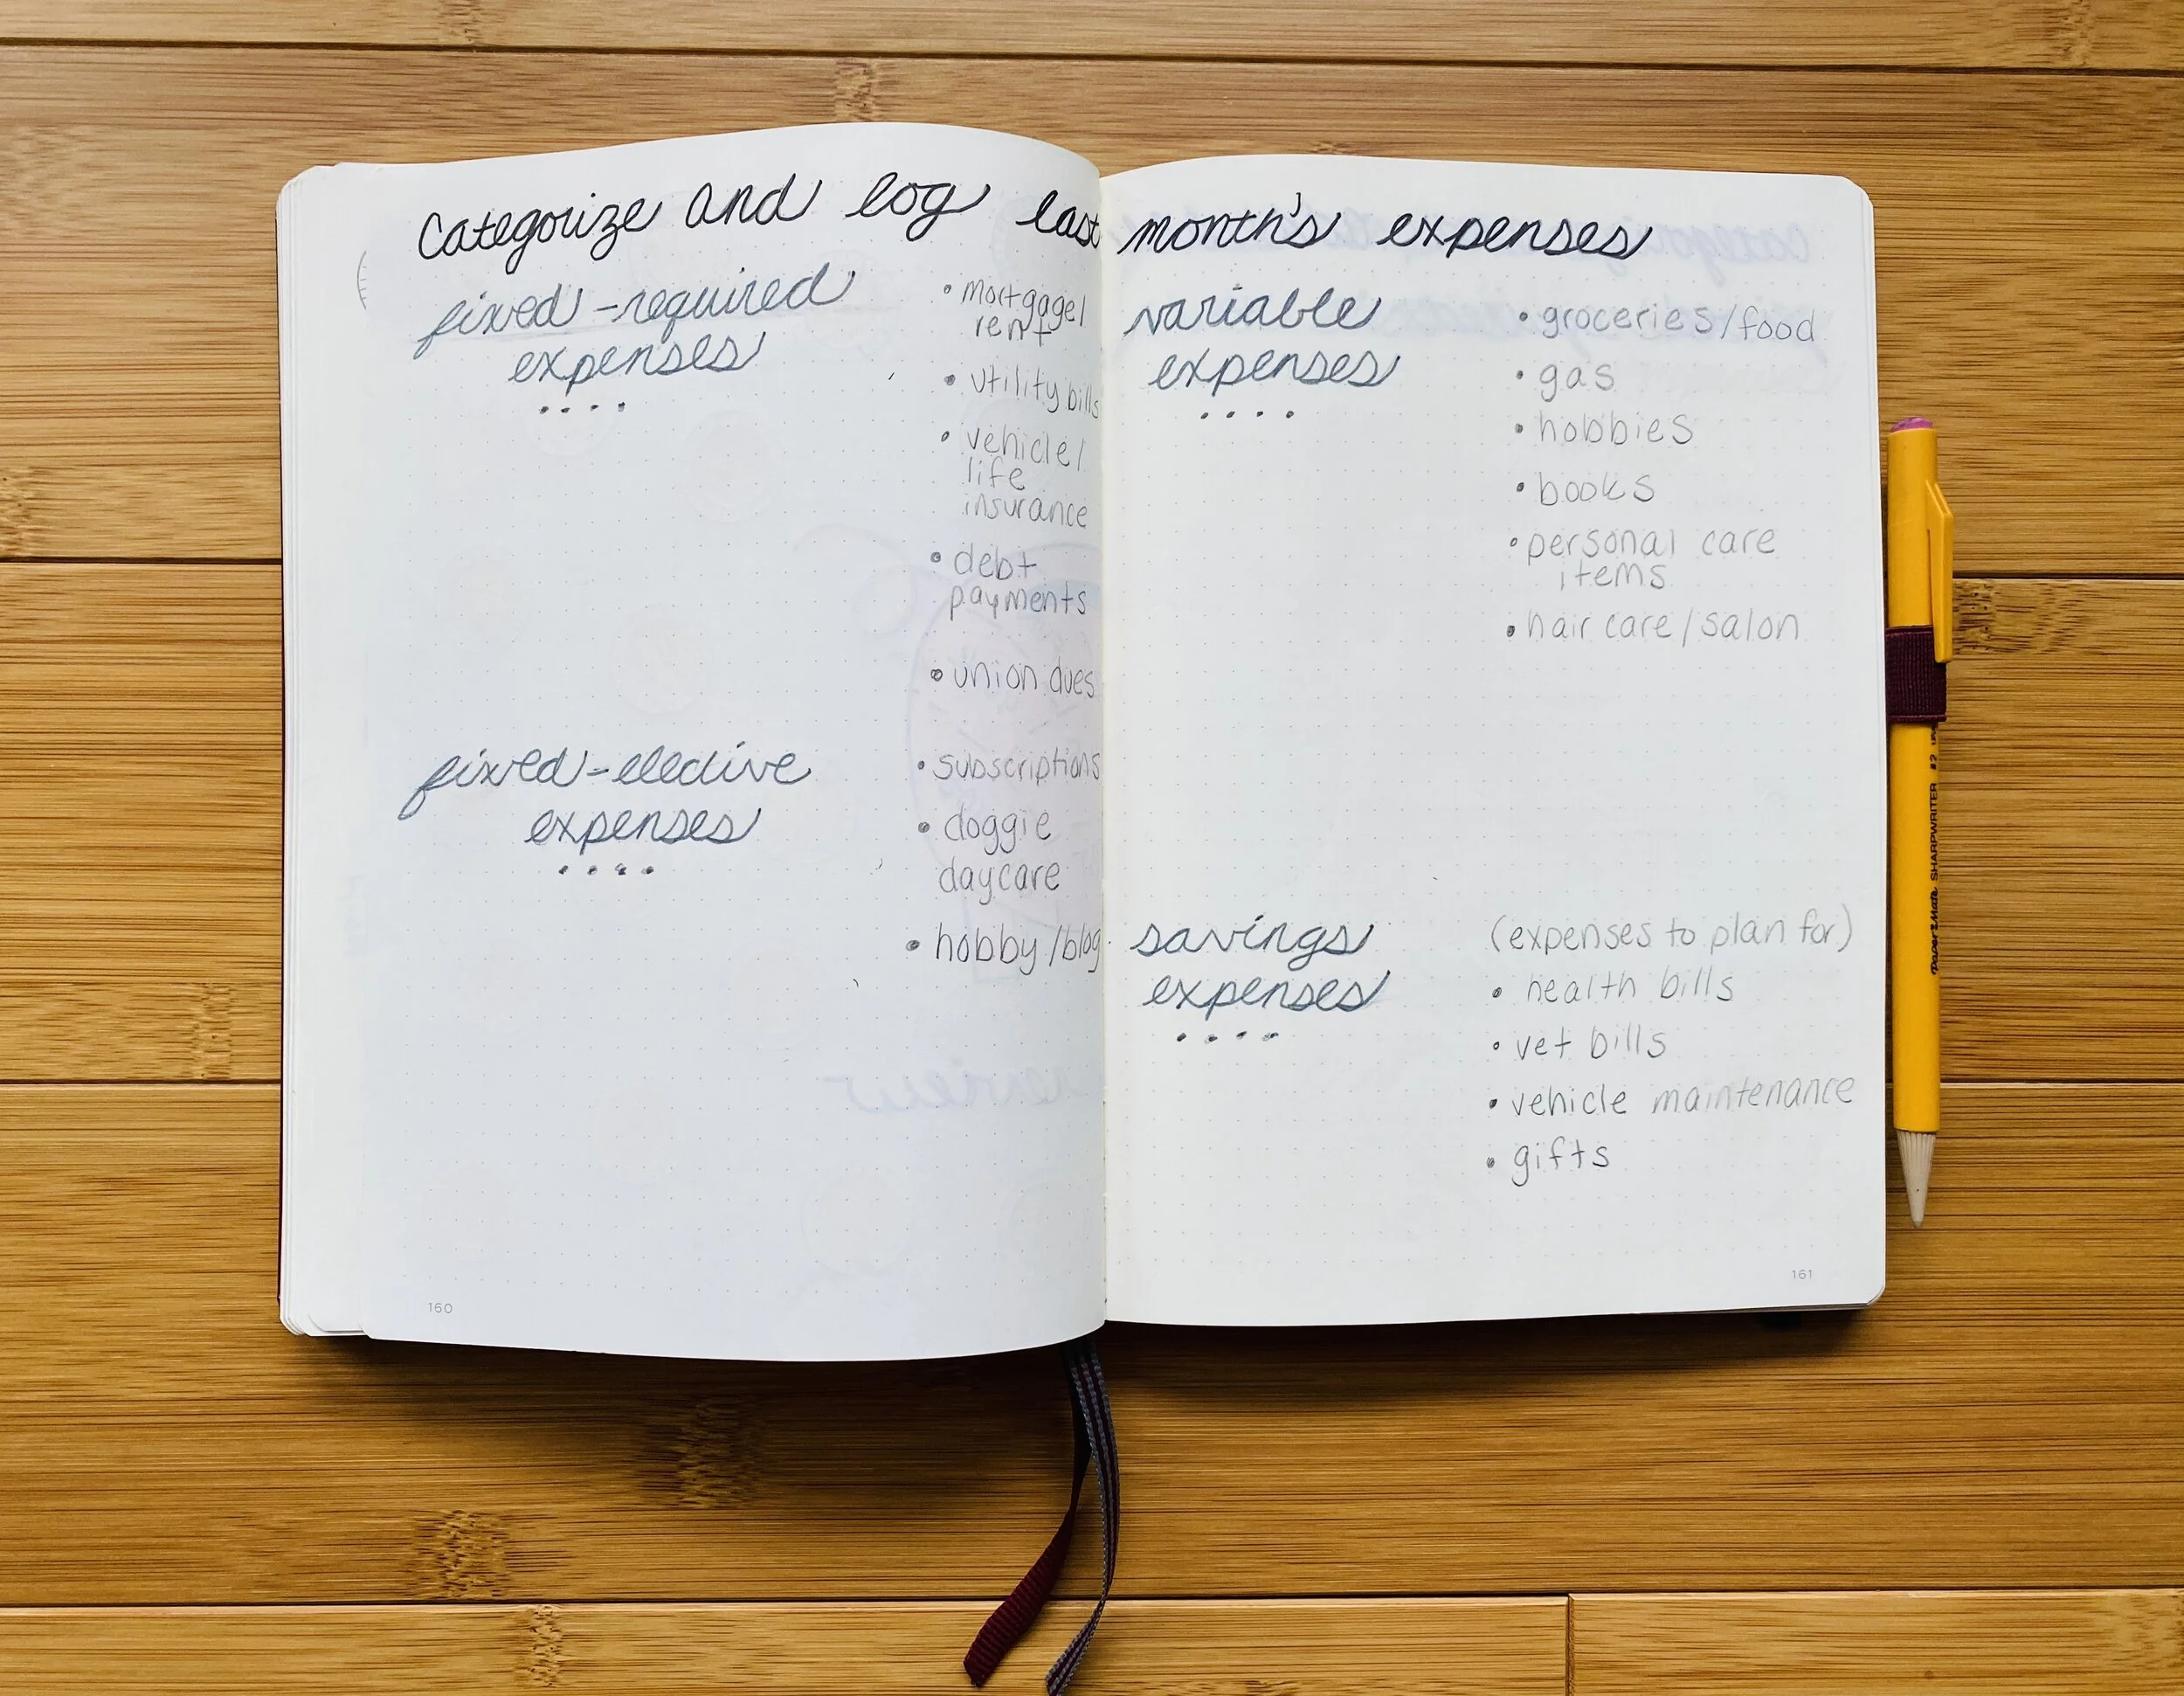 Categorize and log last month's expenses
fixed-required
expenses
• mortgage/
rent
• utility bills
• vehicle/
life
insurance
• debt
payments
• union dues
fixed-elective
expenses
• subscriptions
• doggie
daycare
• hobby/blog
160
variable
expenses
• groceries/food
• gas
• hobbies
• books
• personal care
items
• hair care/salon
savings
expenses
(expenses to plan for)
• health bills
• vet bills
• vehicle maintenance
• gifts
161
Paper Mate SHARPWRITER #2